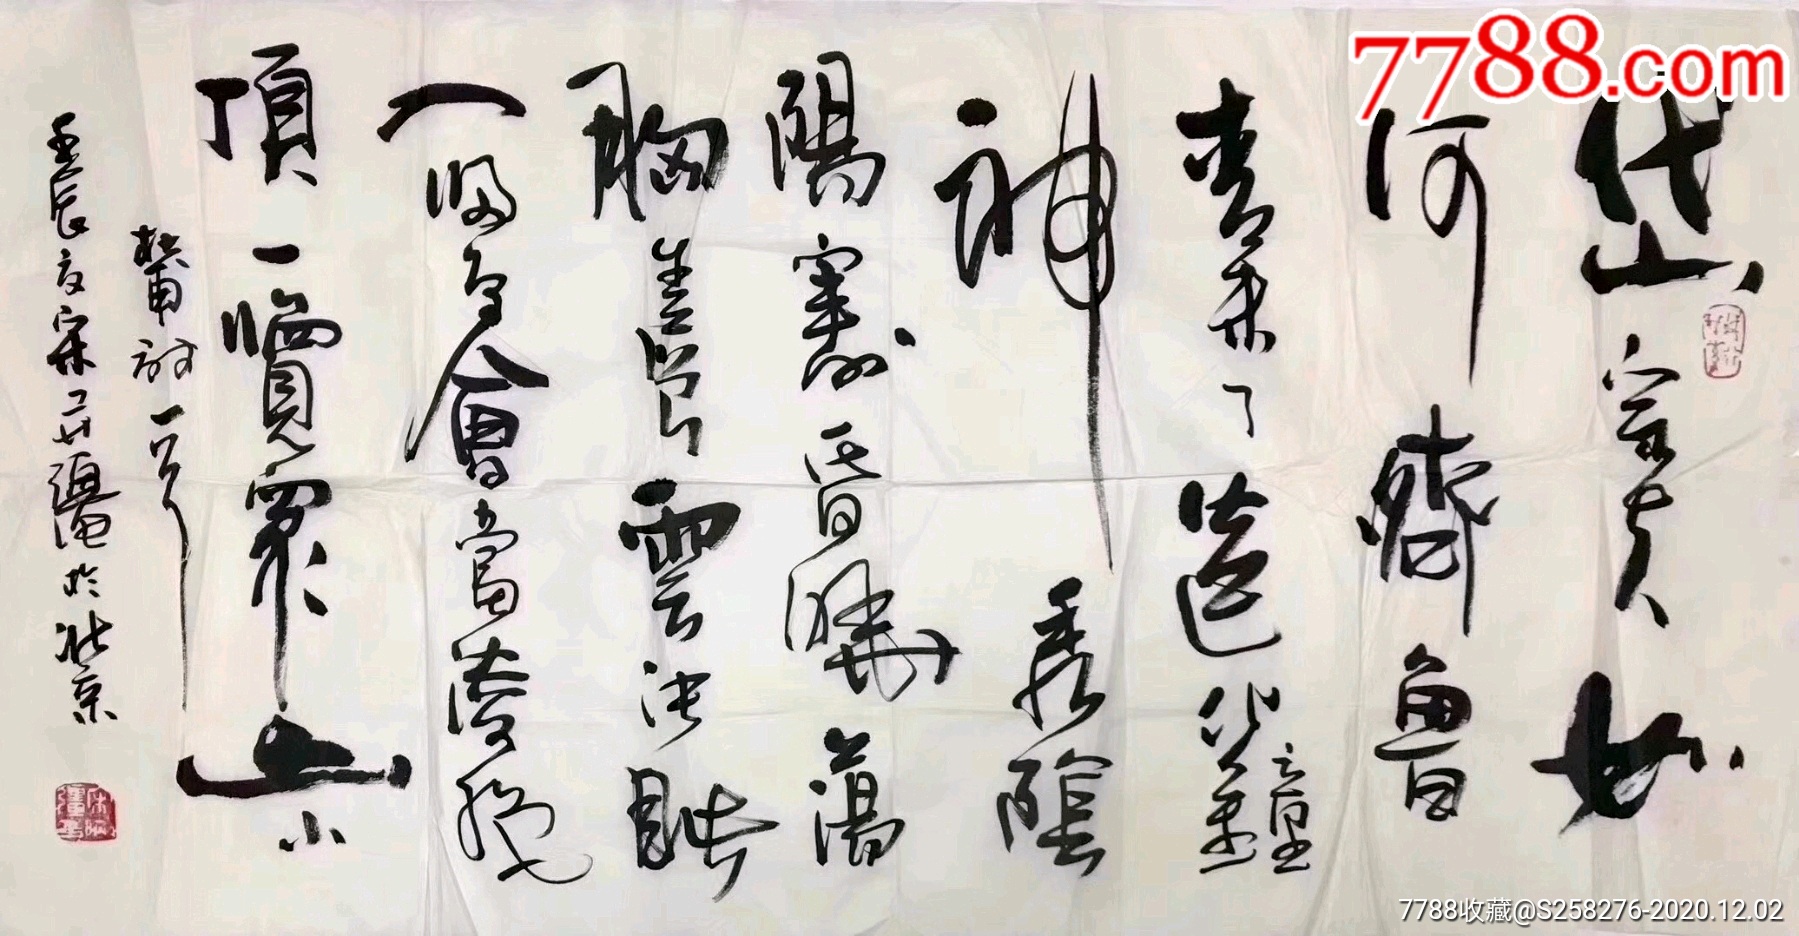 岱宗夫如
何齊魯
青未了造化鐘
神秀陰
陽割昏曉蕩
胸生層雲決眦
入歸鳥會當凌絕
頂一覽衆山小
杜甫詩一首
壬辰夏宋於北京
7788.com
7788收藏@S258276-2020.12.02